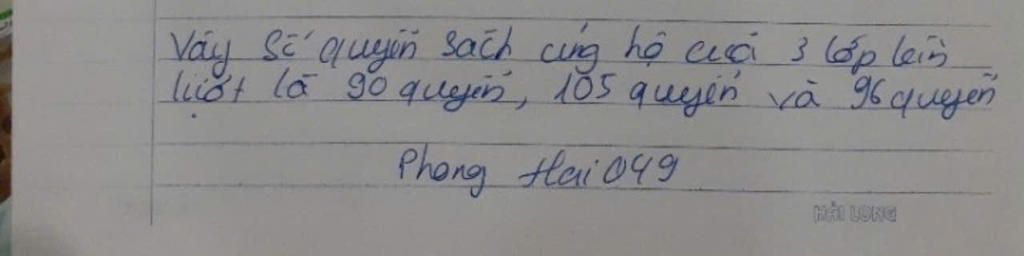 Vậy số quyển sách ủng hộ của 3 lớp lần
lượt là 90 quyển, 105 quyển và 96 quyển
Phong Hai 049
HẢI LONG